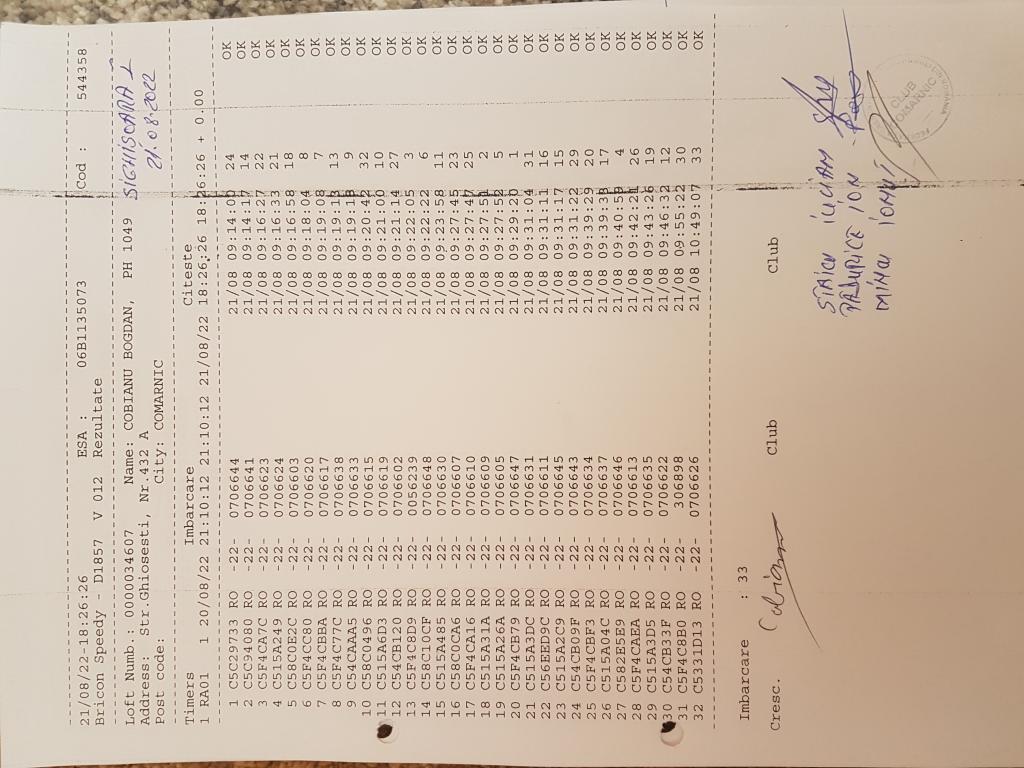 21/08/22-18:26:26 ESA : 06B1135073 Cod : 544358
Bricon Speedy - D1857 V 012 Rezultate
Loft Numb.: 0000034607 Name: COBIANU BOGDAN, PH 1049 SIGHISOARA 1
Address: Str.Ghiosesti, Nr.432 A 21.08.2022
Post code: City: COMARNIC
Timers Imbarcare Citeste
1 RA01 1 20/08/22 21:10:12 21:10:12 21/08/22 18:26:26 18:26:26 + 0.00
1 C5C29733 RO -22- 0706644 21/08 09:14:00 24 OK
2 C5C94080 RO -22- 0706641 21/08 09:14:17 14 OK
3 C5F4CA7C RO -22- 0706623 21/08 09:16:27 22 OK
4 C515A249 RO -22- 0706624 21/08 09:16:33 21 OK
5 C58C0E2C RO -22- 0706603 21/08 09:16:58 18 OK
6 C5F4CC80 RO -22- 0706620 21/08 09:18:04 8 OK
7 C5F4CBBA RO -22- 0706617 21/08 09:19:08 7 OK
8 C5F4C77C RO -22- 0706638 21/08 09:19:13 13 OK
9 C54CAAA5 RO -22- 0706633 21/08 09:19:18 9 OK
10 C58C0496 RO -22- 0706615 21/08 09:20:42 32 OK
11 C515A6D3 RO -22- 0706619 21/08 09:21:00 10 OK
12 C54CB120 RO -22- 0706602 21/08 09:21:14 27 OK
13 C5F4C8D9 RO -22- 0056239 21/08 09:22:05 3 OK
14 C58C10CF RO -22- 0706648 21/08 09:22:22 6 OK
15 C515A485 RO -22- 0706630 21/08 09:23:58 11 OK
16 C58C0CA6 RO -22- 0706607 21/08 09:27:45 23 OK
17 C5F4CA16 RO -22- 0706610 21/08 09:27:47 25 OK
18 C515A31A RO -22- 0706609 21/08 09:27:51 2 OK
19 C515A26A RO -22- 0706605 21/08 09:27:52 5 OK
20 C5F4CB79 RO -22- 0706647 21/08 09:29:20 1 OK
21 C515A3DC RO -22- 0706631 21/08 09:31:04 31 OK
22 C56EED9C RO -22- 0706611 21/08 09:31:11 16 OK
23 C515A2C9 RO -22- 0706645 21/08 09:31:17 15 OK
24 C54CB09F RO -22- 0706643 21/08 09:31:22 29 OK
25 C5F4CBF3 RO -22- 0706634 21/08 09:39:29 20 OK
26 C515A04C RO -22- 0706637 21/08 09:39:38 17 OK
27 C582E5E9 RO -22- 0706646 21/08 09:40:59 4 OK
28 C5F4CAEA RO -22- 0706613 21/08 09:42:21 26 OK
29 C515A3D5 RO -22- 0706635 21/08 09:43:26 19 OK
30 C54CB33F RO -22- 0706622 21/08 09:46:32 12 OK
31 C5F4C8B0 RO -22- 306898 21/08 09:55:22 30 OK
32 C5331D13 RO -22- 0706626 21/08 10:49:07 33 OK
Imbarcare : 33
Cresc. Club Club
Cobianu
STAICU IULIAN
PADURICE ION
MINCU IONUT
CLUB
COMARNIC